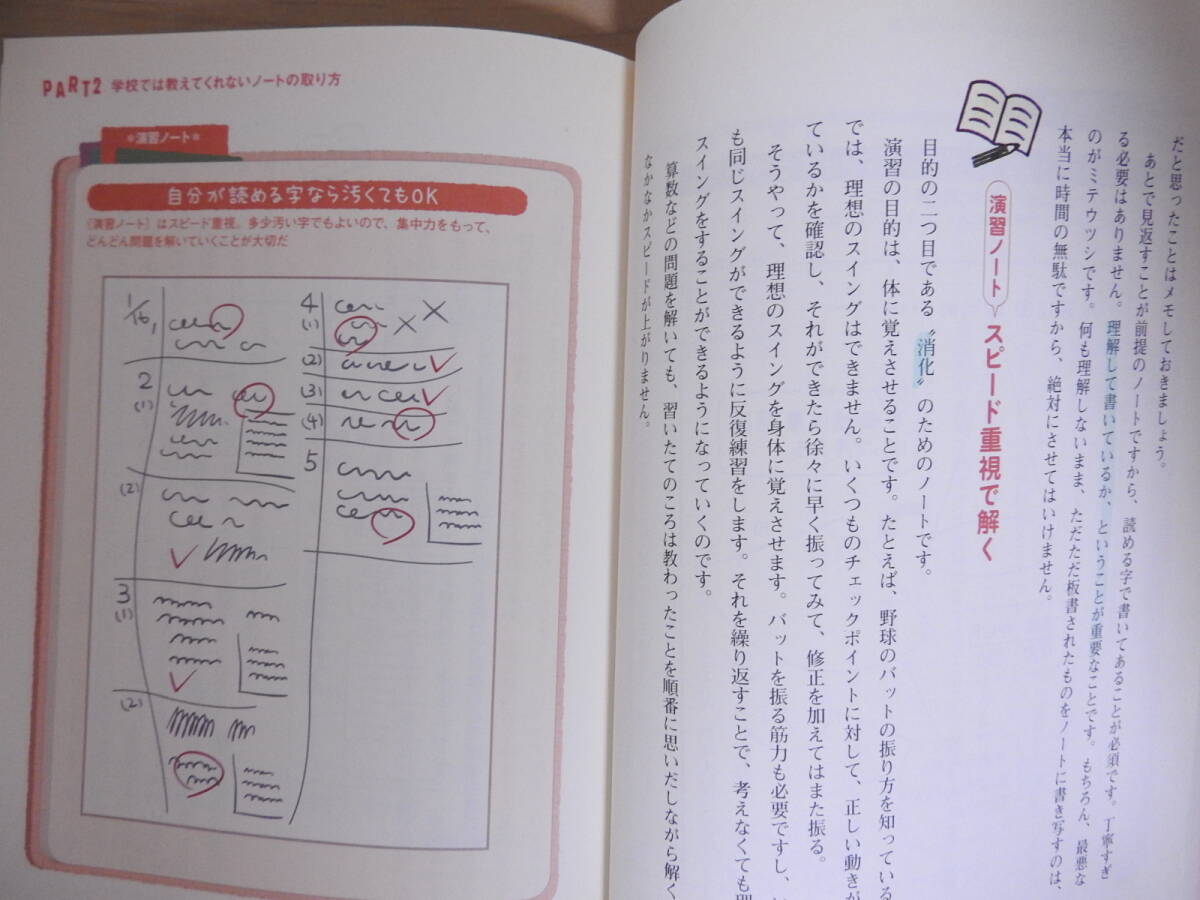 だと思ったことはメモしておきましょう。
あとで見返すことが前提のノートですから、読める字で書いてあることが必須です。丁寧すぎ
る必要はありません。理解して書いているか、ということが重要なことです。もちろん、最悪な
のがミテウツシです。何も理解しないまま、ただただ板書されたものをノートに書き写すのは、
本当に時間の無駄ですから、絶対にさせてはいけません。
演習ノート スピード重視で解く
目的の二つ目である〝消化〟のためのノートです。
演習の目的は、体に覚えさせることです。たとえば、野球のバットの振り方を知っている
では、理想のスイングはできません。いくつものチェックポイントに対して、正しい動きが
ているかを確認し、それができたら徐々に早く振ってみて、修正を加えてはまた振る。
そうやって、理想のスイングを身体に覚えさせます。バットを振る筋力も必要ですし、
も同じスイングができるように反復練習をします。それを繰り返すことで、考えなくても
スイングをすることができるようになっていくのです。
算数などの問題を解いても、習いたてのころは教わったことを順番に思いだしながら解く、
なかなかスピードが上がりません。
PART2 学校では教えてくれないノートの取り方
*演習ノート*
自分が読める字なら汚くてもOK
「演習ノート」はスピード重視。多少汚い字でもよいので、集中力をもって、
どんどん問題を解いていくことが大切だ
1/16
1
2
(1)
(2)
3
(1)
(2)
4
(1)
(2)
(3)
(4)
5